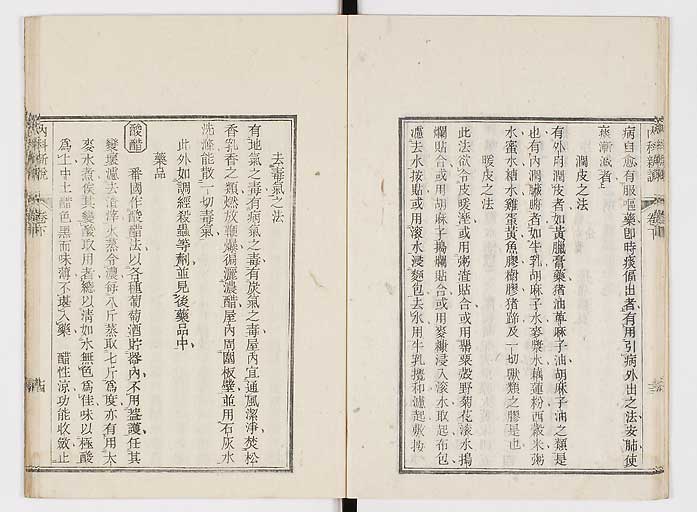 病自愈有服嘔藥即時痰傴出者有用引病外出之法安肺使
痰漸減者
潤皮之法
有外用潤皮者如黃臘膏藥猪油萆麻子油胡麻子油之類是
也有內潤臟腑者如牛乳胡麻子水麥漿水藕蓮粉西穀米粥
水蜜水糖水雞蛋黃魚膠樹膠猪蹄及一切獸類之膠是也
暖皮之法
此法欲令皮暖溼或用粥渣貼合或用罌粟殼野菊花滾水搗
爛貼合或用胡麻子搗爛貼合或用麥糠浸入滾水取起布包
濾去水按貼或用滾水浸麵包去水用牛乳攪和濾起敷按
內科新說
卷下
去毒氣之法
有地氣之毒有病氣之毒有炭氣之毒屋內宜通風潔淨焚松
香乳香之類燃放鞭爆徧灑濃醋屋內周圍板壁並用石灰水
洗滌能散一切毒氣
此外如調經殺蟲等劑並見後藥品中
藥品
酸醋 番國作酸醋法以各種葡萄酒貯器內不用蓋護任其
變壞濾去渣滓火蒸令濃每八斤蒸取七斤爲度亦有用大
麥水煮俟其變酸取用者總以清如水無色爲佳味以極酸
爲上中土醋色黑而味薄不堪入藥 醋性涼功能收斂止
內科新說
卷下